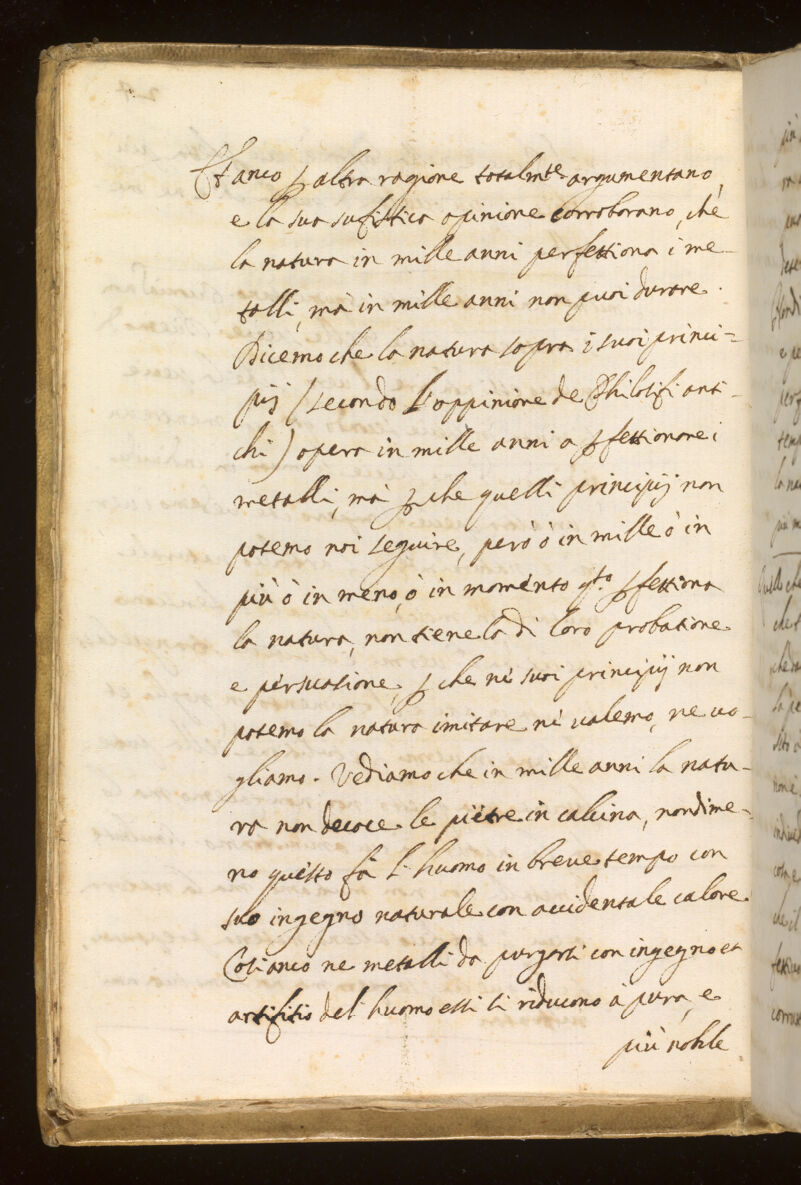 Et anco ꝑ altra ragione totalmte argumentano,
e la sua sufistica opinione corroborano, che
la natura in mille anni perfettiona i me-
talli, mà in mille anni non puoi durare.
Dicemo che la natura sopra i suoi princi=
pij (secondo l'oppinione de Philosifi anti-
chi) opera in mille anni a ꝑfettionare i
metalli, mà ꝑche quelli principij non
potemo noi seguire, però ò in mille ò in
più ò in meno, ò in momento qto ꝑfettiona
la natura, non tiene la di loro probatione
e persuasione, ꝑche nè suoi principij non
potemo la natura imitare nè valemo, ne vo-
gliamo. Vediamo che in mille anni la natu-
ra non decoce le pietre in calcina, nondime-
no questo fà l'huomo in breve tempo con
suo ingegno naturale con accidentale calore.
Così anco ne metalli da purgarsi con ingegno et
artifitio del huomo essi si riducono à pura, e
più nobile